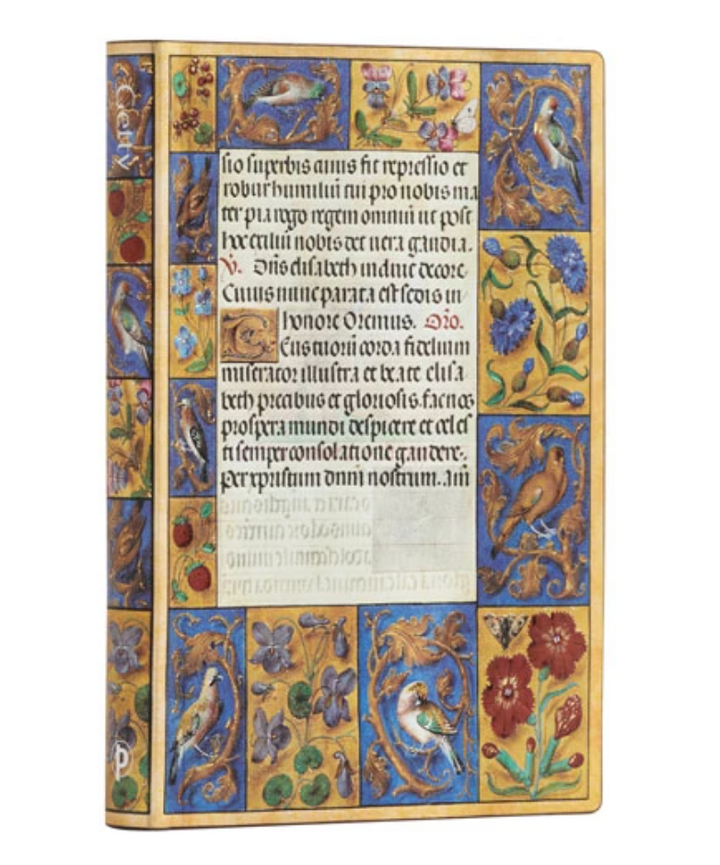 Getty
sio superbis cuius fit repressio et
robur humiliū tui pro nobis ma
ter pia rogo regem omniū ut post
hoc exiliū nobis det uera gaudia.
V. Dn̄s elisabeth induit decore
Cuius nunc parata est sedis in
honore Oremus. Or̄o.
DEus tuorū corda fidelium
miserator illustra et beate elisa
beth precibus et gloriosis. fac nos
prospera mundi despicere et celes
ti semper consolatione gaudere.
Per xpristum dnm̄ nostrum. am̄
p